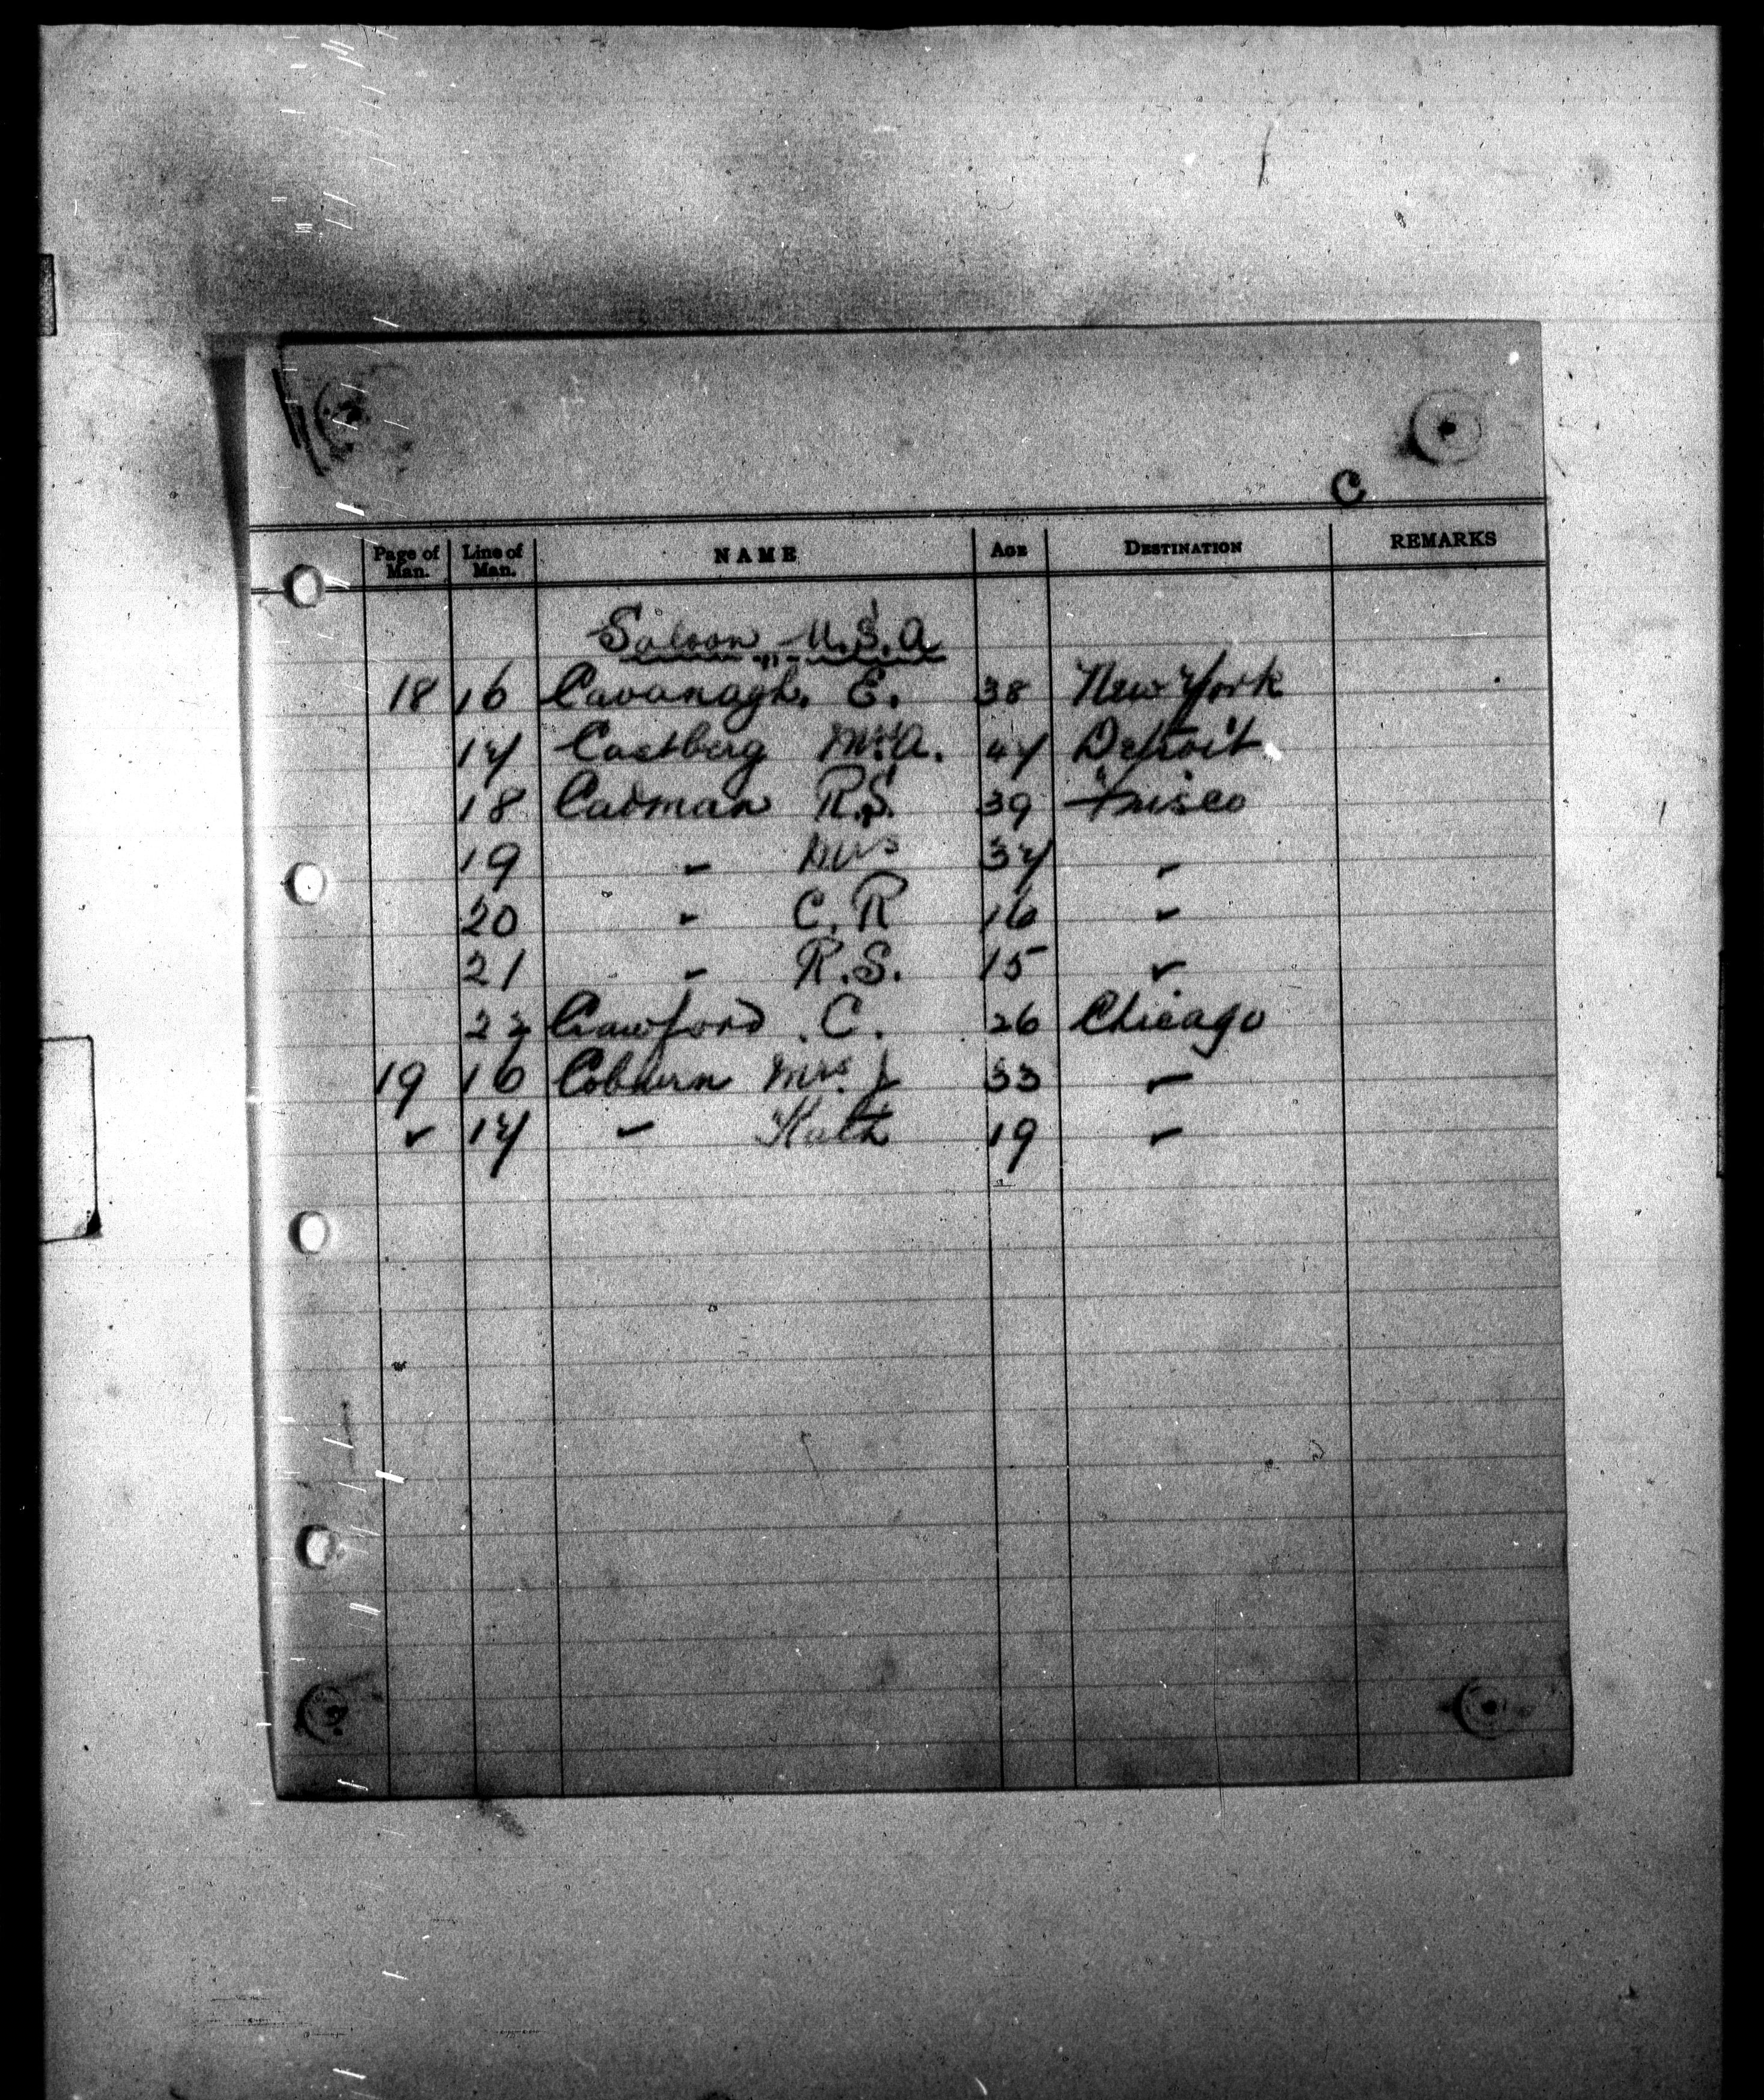 C
Page of Man. Line of Man. NAME AGE DESTINATION REMARKS
Saloon U.S.A
18 16 Cavanagh. E. 38 New York
17 Castberg Mrs A. 47 Detroit
18 Cadman R.S. 39 Frisco
19 " Mrs 37 "
20 " C.R 16 "
21 " R.S. 15 "
22 Crawford .C. 26 Chicago
19 16 Coburn Mrs J 33 "
" 17 " Kath 19 "